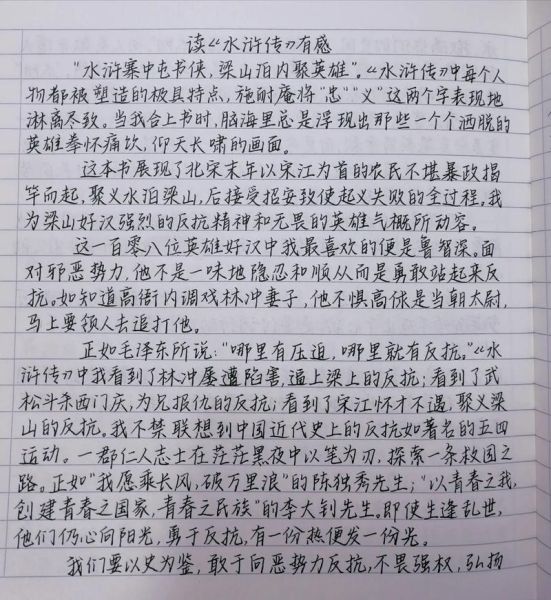 读《水浒传》有感
“水浒寨中屯书侠，梁山泊内聚英雄”。《水浒传》中每个人
物都被塑造的极具特点，施耐庵将“忠”“义”这两个字表现地
淋离尽致。当我合上书时，脑海里总是浮现出那些一个个洒脱的
英雄拳怀痛饮，仰天长啸的画面。
这本书展现了北宋末年以宋江为首的农民不堪暴政揭
竿而起，聚义水泊梁山，后接受招安致使起义失败的全过程。我
为梁山好汉强烈的反抗精神和无畏的英雄气概所动容。
这一百零八位英雄好汉中我最喜欢的便是鲁智深。面
对邪恶势力，他不是一味地隐忍和顺从而是勇敢站起来反
抗。如知道高衙内调戏林冲妻子，他不惧高俅是当朝太尉，
马上要领人去追打他。
正如毛泽东所说：“哪里有压迫，哪里就有反抗。”《水
浒传》中我看到了林冲屡遭陷害，逼上梁上的反抗；看到了武
松斗杀西门庆，为兄报仇的反抗；看到了宋江怀才不遇，聚义梁
山的反抗。我不禁联想到中国近代史上的反抗如著名的五四
运动。一群仁人志士在茫茫黑夜中以笔为刃，探索一条救国之
路。正如“我愿乘长风，破万里浪”的陈独秀先生；“以青春之我，
创建青春之国家，青春之民族”的李大钊先生。即使生逢乱世，
他们仍心向阳光，勇于反抗，有一份热便发一份光。
我们要以史为鉴，敢于向恶势力反抗，不畏强权，弘扬